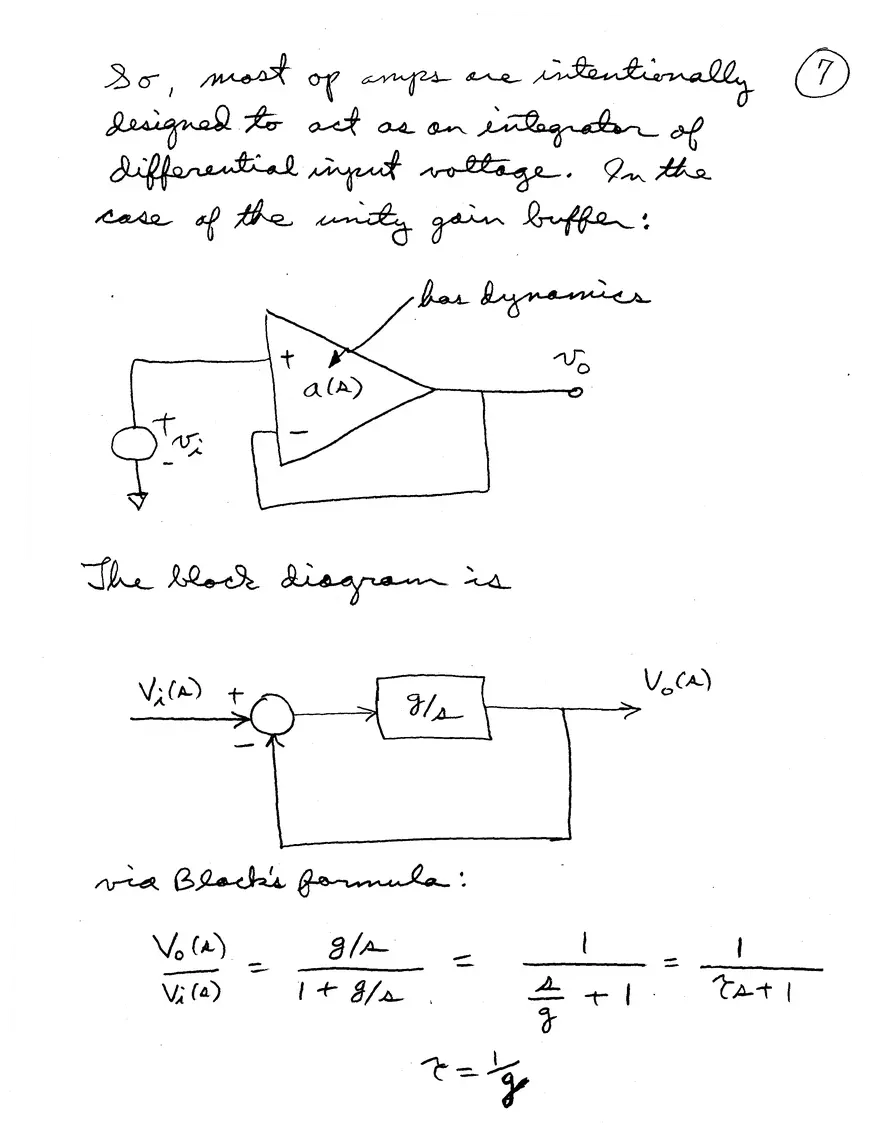 So, most op amps are intentionally
7
designed to act as an integrator of
differential input voltage. In the
case of the unity gain buffer:
has dynamics
+
a(s)
v₀
+
vᵢ
-
−
The block diagram is
Vᵢ(s) +
g/s
V₀(s)
−
via Black's formula:
V₀(s)/Vᵢ(s) = (g/s)/(1 + g/s) = 1/(s/g + 1) = 1/(τs + 1)
τ = 1/g